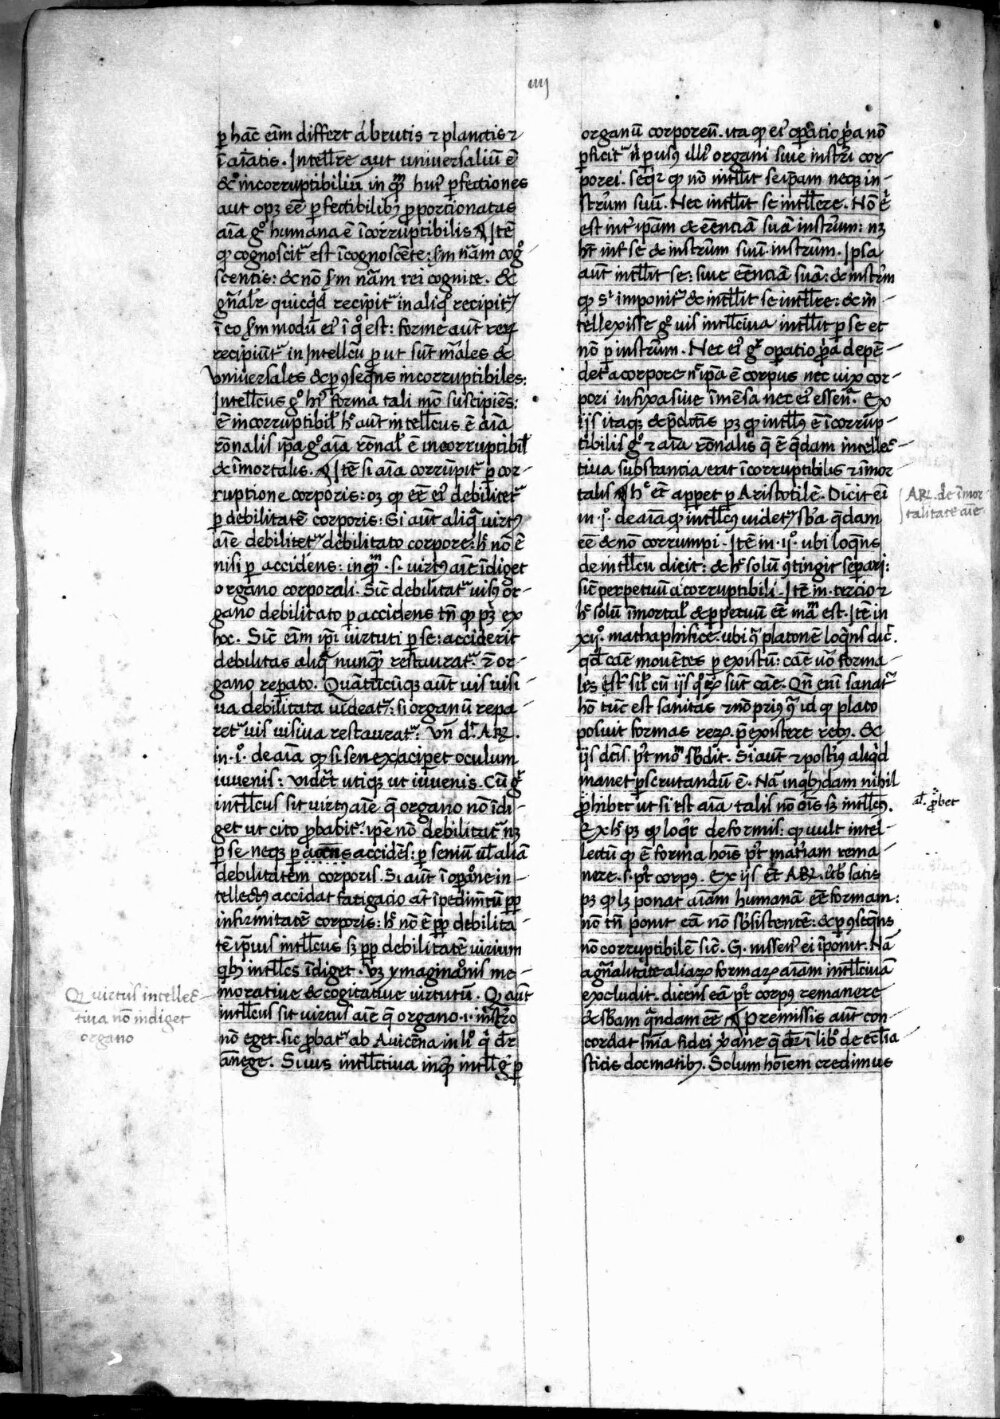 ıııȷ
ꝑ hāc eīm differt á brutis ⁊ plantis ⁊
īaīatis. Intell̄re aut̄ universaliū ē
&c incorruptibiliū inqᷓm hui⁹ ꝑfectiones
aut oꝫ eē ꝑfectibilib⁹ ꝓportionatas
aīa gͦ humana ē īcorruptibilis ¶ Itē
qđ cognoscit᷑ est īcognoscēte: ſm nām cogͦ
scentis: & nō ſm nām rei cognite. &
gn̄alr̄ quicqđ recipit᷑ in aliqͦ recipit᷑
ī eo ſm modū ei⁹ ī qͦ est: forme aut̄ reꝝ
recipiūt᷑ in Intellcū ꝓut sūt mālēs &
universales & ꝑ ꝯseqn̄s incorruptibiles:
Intellcus gͦ hr̄ forma tali mō suscipiēs:
ē incorruptibil̄ hͨ aut̄ intellcus ē aīa
rōnalis ip̄a gͦ aīa rōnal̄ ē incorruptibil̄
& īmortalis. ¶ Itē si aīa corrūpit᷑ ꝑ cor-
ruptione corporis: oꝫ qđ eē ei⁹ debilitet᷑
ꝑ debilitatē corporis: Si aut̄ aliqͣ virt⁹
aīe debilitet᷑ debilitato corpore: hͨ nō ē
nisi ꝑ accidens: inqᷓm .s. virt⁹ aīe īdiget
organo corporali. Sic̄ debilitat᷑ vis⁹ or-
gano debilitato ꝑ accidens tn̄ qđ pꝫ ex
hoc. Sic̄ eīm ip̄i virtuti ꝑ se: acciderit
debilitas aliqͣ nunqᷓ restaurat᷑ ⁊ or-
gano repato. Quātūcūqꝫ aut̄ vis visi-
va debilitata videat᷑: si organū repa-
ret᷑ vis visiva restaurat᷑. Vn̄ dr̄. AR.
in .iͦ. de aīa qđ si senex accipiet oculum
iuvenis: videt̄ utiqꝫ ut iuvenis. Cū gͦ
intllcus sit virt⁹ aīe qͥ organo nō īdi-
get ut cito ꝓbabit᷑. ip̄e nō debilitat᷑ nꝫ
ꝑ se neqꝫ ꝑ accidēs: ꝑ seniū ul̄ aliā
debilitatem corporis. Si aut̄ ī opōne in-
tellect⁹ accidat fatigacio aut īpedimētū ꝓp
infirmitatē corporis: hͨ nō ē ꝓp debilita-
tē ip̄ius intllcus sꝫ ꝓp debilitatē virium
qb⁹ intllcs īdiget. vꝫ ymaginaōnis me-
morative & cogitative virtutū. Qđ aut̄
intllcus sit virtus aīe qͥ organo .i. instrō
nō eget. sic ꝓbat᷑ ab Avicēna in liͦ qͥ dr̄
ānege. Si vis intllctiva inqͥt intlligͥt ꝑ
Qđ virtus intellec-
tiva nōn indiget
organo
organū corporeū. ita qđ ei⁹ opatio ꝓpa nō
ꝑficit᷑ n̄ ꝑ usū illi⁹ organi sive instrī cor-
porei. seqr̄ qđ nō intllit seip̄am neqꝫ in-
strūm suū. Nec intllit se intllere. Nō ē
est int᷑ ip̄am & eēnciā suā instrūm: nꝫ
ht̄ int᷑ se & instrūm suū instrūm. Ipsa
aut̄ intllit se: sive eēnciā suā: & instrūm
qđ si imponit᷑ & intllit se intllre: & in-
tellexisse gͦ vis intllciva intllit ꝑ se et
nō ꝑ instrūm. Nec ei⁹ gͦ opatio ꝓpa depē-
det a corpore nͨ ip̄a ē corpus nec vix cor-
pori infixa sive īmēsa nec ei⁹ essen᷑. Ex
iis itaqꝫ & p̄dictis pꝫ qđ intlls ē īcorrup-
tibilis gͦ ⁊ aīa rōnalis q̄ ē qͣdam intellec-
tiva substantia erit īcorruptibilis ⁊ īmor-
talis ¶ hͨ et̄ appet ꝑ Aristotilē. Dicit eī
in .iͦ. de aīa qđ intllcus videt᷑ sb̄a qͣdam
eē & nō corrumpi. Itē in .iiͦ. ubi loqn̄s
de intllcu dicit: & hͨ solū ꝯtingit sep̄ari:
sic̄ perpetuū á corruptibili. Itē in tercio ⁊
hͨ solū īmortal̄ & ꝑpetuū eē māt est. Itē in
xiiͦ. mathaphisice. ubi ꝯͣ platonē loqn̄s dic̄.
qđ cāe movētes p̄existūt: cāe vͦ forma-
les est̄ sil̄ cū iis qͦꝝ sūt cāe. Qn̄ enī sanat᷑
hō tūc est sanitas ⁊ nō prius qͣ id qđ plato
posuit formas reꝝ p̄existere reb⁹. Et
iis dc̄is. pͭ moᷤ sb̄dit. Si aut̄ ⁊ posti⁹ aliqd
manet ꝑscrutandū ē. Nā inqb⁹dam nihil
ꝓhibet ut si est aīa talis nō oīs sꝫ intllcus.
Ex hͨ pꝫ qđ loqr̄ de formis: qđ vult intel-
lectū qđ ē forma hoīs pͭ mat̄iam rema-
nere .s. pͭ corpus. Ex iis et̄ AR. v̄b satis
pꝫ qđ lꝫ ponat aīam humanā eē formam:
nō tn̄ ponit eā nō sb̄sistentē: & ꝑ ꝯseqn̄s
nō corruptibilē sic̄. G. nissen⁹ ei īponit. Nā
a gn̄alitate aliaꝝ formaꝝ aīam intllcivā
excludit. dicens eā pͭ corpus remanere
& sb̄am qͣndam eē ¶ premissis aut̄ con-
cordat sn̄ia fidei xp̄iane q̄ dr̄ i lib̄ de ecclīa-
sticis docmatib⁹. Solum hoīem credimus
AR. de īmor-
talitate aīe
al̄. ꝓbet